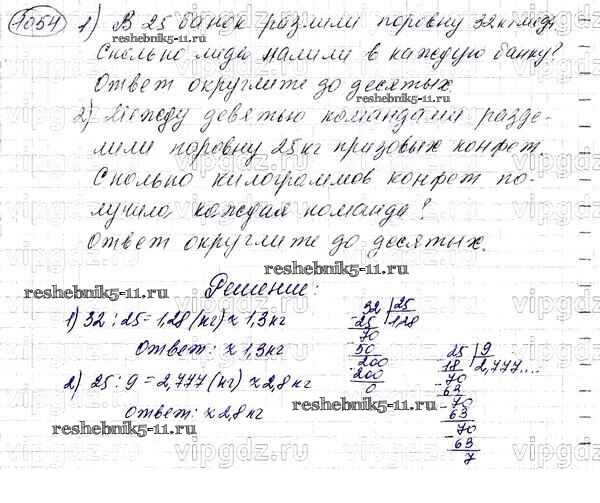 1054 1) В 25 банок разлили поровну 32 кг меда.
Сколько меда налили в каждую банку?
Ответ округлите до десятых.
2) Между девятью командами разде-
лили поровну 25 кг призовых конфет.
Сколько килограммов конфет по-
лучила каждая команда?
Ответ округлите до десятых.
Решение:
1) 32 : 25 = 1,28 (кг) ≈ 1,3 кг
Ответ: ≈ 1,3 кг
2) 25 : 9 = 2,777 (кг) ≈ 2,8 кг
Ответ: ≈ 2,8 кг
32 25
- 25 1,28
70
- 50
200
- 200
0
25 9
- 18 2,777....
70
- 63
70
- 63
70
- 63
7
reshebnik5-11.ru
reshebnik5-11.ru
reshebnik5-11.ru
reshebnik5-11.ru
reshebnik5-11.ru
reshebnik5-11.ru
vipgdz.ru